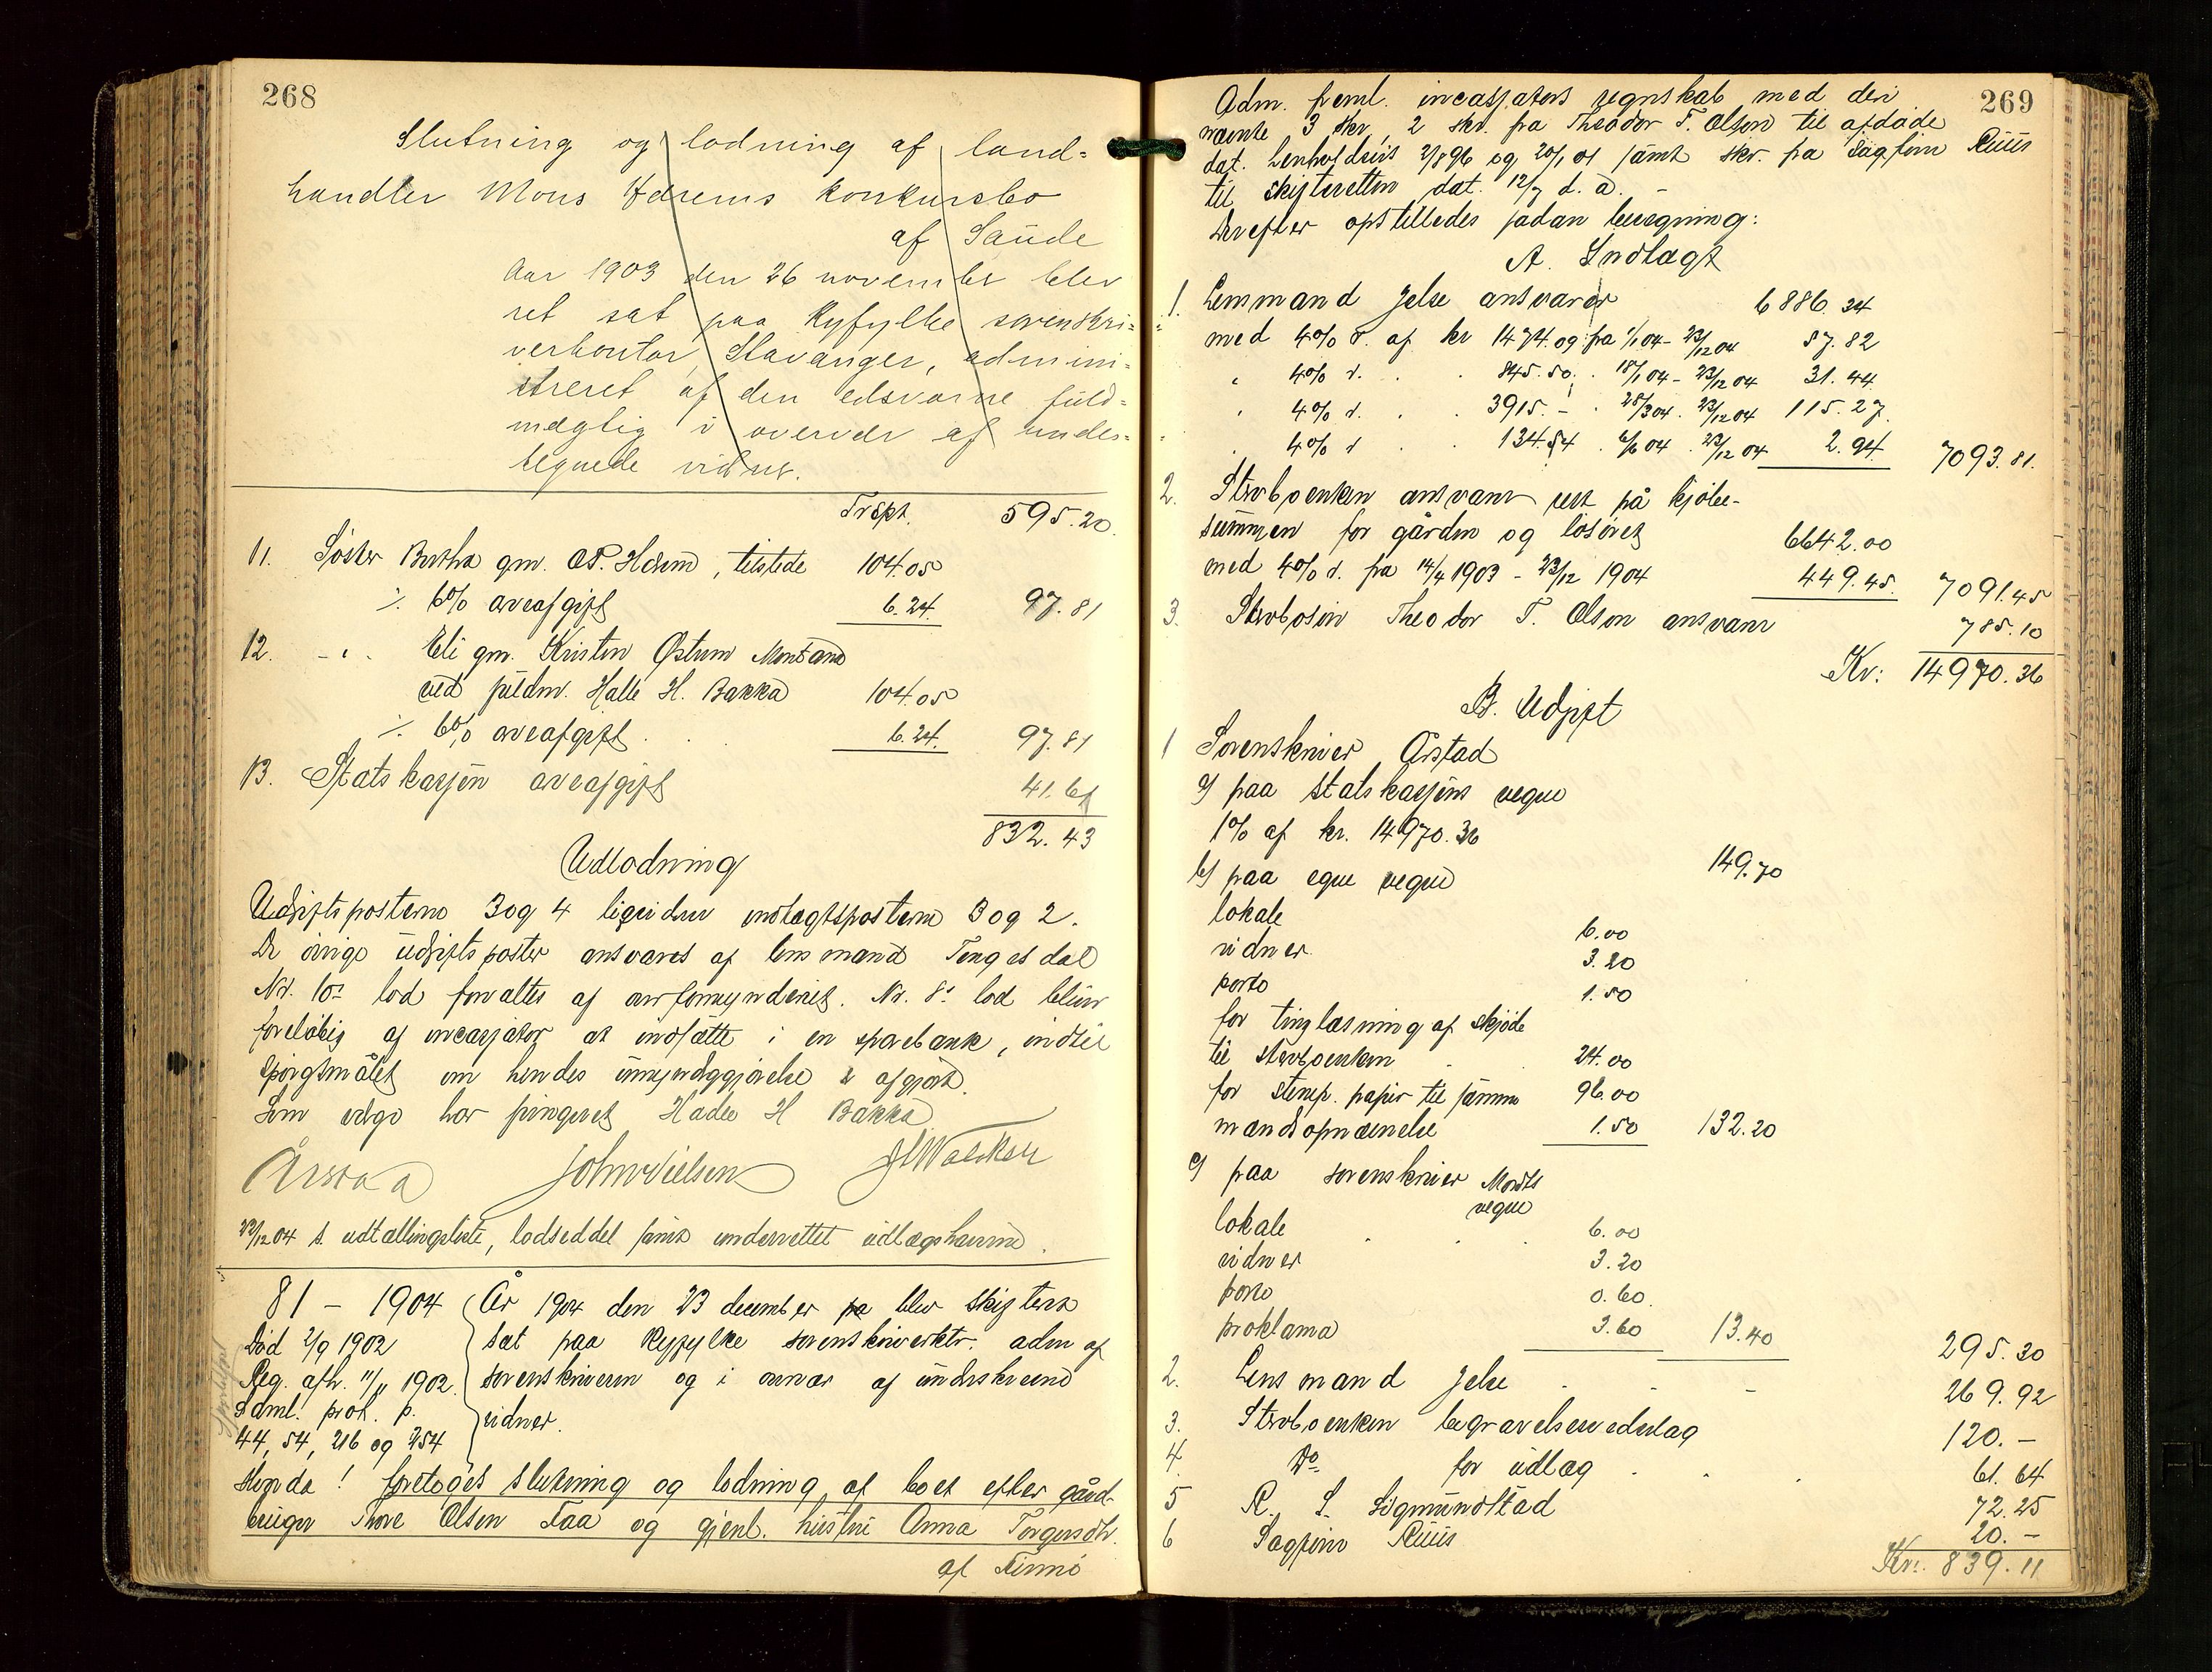 268
Slutning og lodning af land=
handler Mons Færens konkursbo
af Saude
Aar 1903 den 26 november blev
ret sat paa Ryfylke sorenskri=
verkontor, Stavanger, admini=
streret af den edsvorne fuld=
mægtig i overvær af under=
tegnede vidner.
Trspt. 595.20.
11. Søster Bertha gm. O.P. Herem, tilstede 104.05
÷ 6% arveafgift 6.24. 97.81
12. - " - Eli gm. Kristen Østrem
ved fuldm. Halle H. Bakka 104.05
÷ 6% arveafgift . . 6.24. 97.81
13. Statskassen arveafgift 41.61
832.43
Udlodning
Udgiftsposterne 3 og 4 ligvideres indtægtsposterne 3 og 2.
De øvrige udgiftsposter ansvares af lensmand Tengesdal
Nr. 10s lod forvaltes af overformynderiet. Nr. 8s lod bliver
foreløbig af incassator at indsætte i en sparebank, indtil
spørgsmålet om hendes umyndiggjørelse er afgjort.
Som værge har fungeret Halle H Bakka
Årstad John Nielsen
23/12 04 s. udtællingsliste, lodseddel samt underrettet udlægshaverne.
81 - 1904
Død 2/9 1902
Reg. afh. 11/11 1902.
Saml. prot. p.
44, 54, 216 og 254
År 1904 den 23 december blev skifteret
sat paa Ryfylke sorenskriverktr. adm af
sorenskriveren og i overvær af underskrevne
vidner.
Hvorda! foretoges slutning og lodning af boet efter gård-
bruger Thore Olsen Faa og gjenl. hustru Anna Torgersdtr.
af Finnø
269
Adm. freml. incassators regnskab med deri
nævnte 3 skr, 2 skr. fra Theodor T. Olson til afdøde
dat. 2/8 96 og 20/1 01 samt skr. fra Sagfører Ruus
til skifteretten dat. 12/7 d. å. -
Derefter opstilledes sådan beregning:
A. Indtægt
1. Lensmand Jelse ansvarer 6886.34
med 4% r. af kr 1474.09 fra 1/1 04 - 23/12 04 57.82
" 4% r. . . 845.50. . 18/1 04 - 23/12 04 31.44
" 4% r. . . 3915.- . 28/3 04. 23/12 04 115.27
" 4% r . . 134.54 . 6/6 04 . 23/12 04 2.94 7093.81.
2. Stervboenken ansvarer rest på kjøbe-
summen for gården og løsøret 6642.00
med 4% r. fra 14/4 1903 - 23/12 1904 449.45. 7091.45
3. Stervbosøn Theodor T. Olson ansvarer 785.10
Kr: 14970.36
B. Udgift
1 Sorenskriver Årstad
a) paa statskassens vegne
1% af kr. 14970.36 149.70
b) paa egne vegne
lokale 6.00
vidner 3.20
porto 1.50
for tinglæsning af skjøde
til stervboenken . 24.00
for stemp. papir til samme 96.00
mandsopnævnelse 1.50 132.20
c) paa sorenskriver vegne
lokale . . . 6.00
vidner 3.20
porto 0.60.
proklama 3.60 13.40 295.30
2. Lensmand Jelse . . - 269.92
3. Stervboenken begravelsesvederlag 120.-
4. Do for udlæg . . . 61.64
5 R. S. Sigmundstad 72.25
6 Sagfører Ruus 20.-
Kr: 839.11